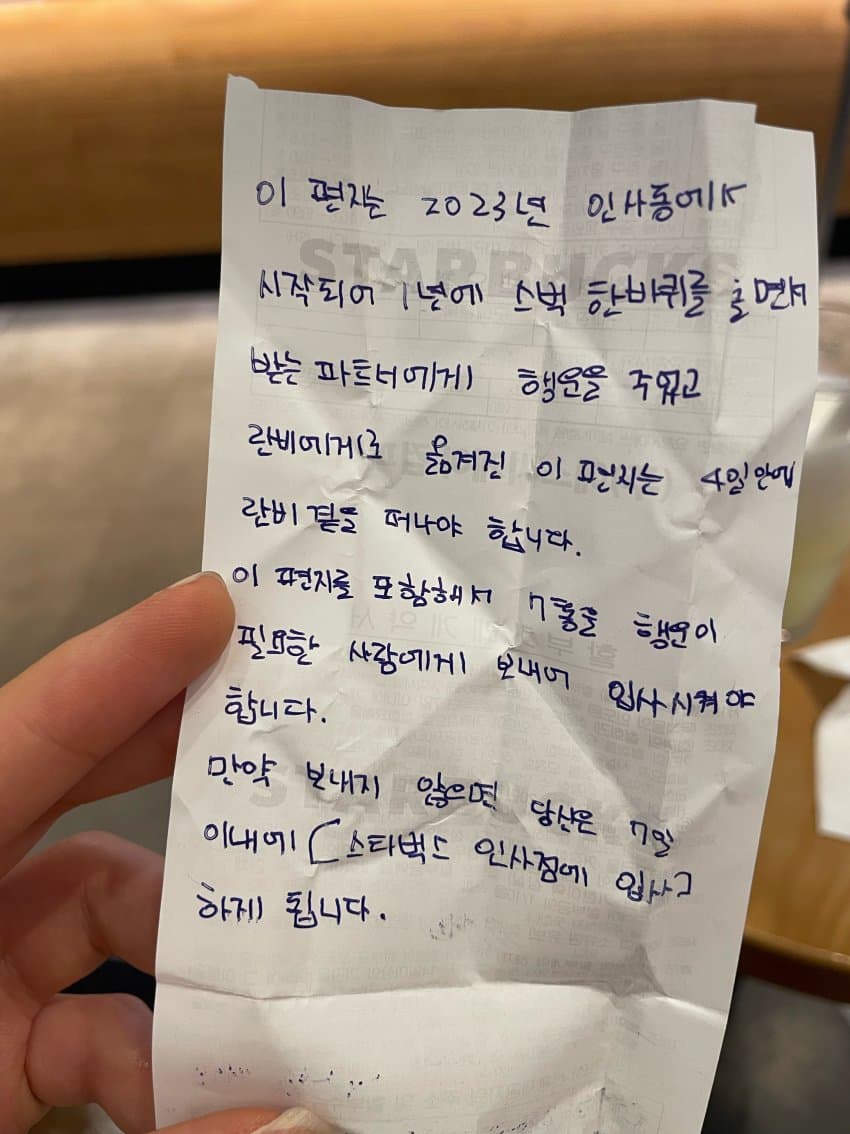 이 편지는 2023년 인사동에서
시작되어 1년에 스벅 한바퀴를 돌면서
받는 파트너에게 행운을 주었고
란비에게로 옮겨진 이 편지는 4일안에
란비 곁을 떠나야 합니다.
이 편지를 포함해서 7통을 행운이
필요한 사람에게 보내어 입사시켜야
합니다.
만약 보내지 않으면 당신은 7일
이내에 「스타벅스 인사점에 입사」
하게 됩니다.
STARBUCKS
STARBUCKS